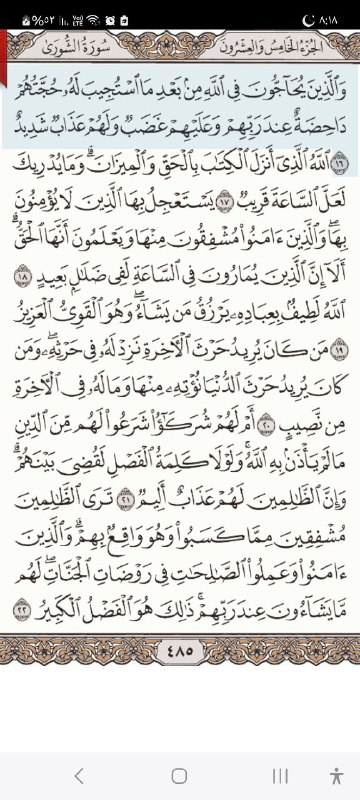 %٥٢ VoLTE ٨:١٨
الجُزْءُ الخَامِسُ وَالعِشْرُونَ سُورَةُ الشُّورَىٰ
وَٱلَّذِينَ يُحَآجُّونَ فِى ٱللَّهِ مِنۢ بَعْدِ مَا ٱسْتُجِيبَ لَهُۥ حُجَّتُهُمْ
دَاحِضَةٌ عِندَ رَبِّهِمْ وَعَلَيْهِمْ غَضَبٌ وَلَهُمْ عَذَابٌ شَدِيدٌ
١٦ ٱللَّهُ ٱلَّذِىٓ أَنزَلَ ٱلْكِتَٰبَ بِٱلْحَقِّ وَٱلْمِيزَانَ ۗ وَمَا يُدْرِيكَ
لَعَلَّ ٱلسَّاعَةَ قَرِيبٌ ١٧ يَسْتَعْجِلُ بِهَا ٱلَّذِينَ لَا يُؤْمِنُونَ
بِهَا ۖ وَٱلَّذِينَ ءَامَنُوا۟ مُشْفِقُونَ مِنْهَا وَيَعْلَمُونَ أَنَّهَا ٱلْحَقُّ ۗ
أَلَآ إِنَّ ٱلَّذِينَ يُمَارُونَ فِى ٱلسَّاعَةِ لَفِى ضَلَٰلٍۭ بَعِيدٍ ١٨
ٱللَّهُ لَطِيفٌۢ بِعِبَادِهِۦ يَرْزُقُ مَن يَشَآءُ ۖ وَهُوَ ٱلْقَوِىُّ ٱلْعَزِيزُ
١٩ مَن كَانَ يُرِيدُ حَرْثَ ٱلْءَاخِرَةِ نَزِدْ لَهُۥ فِى حَرْثِهِۦ ۖ وَمَن
كَانَ يُرِيدُ حَرْثَ ٱلدُّنْيَا نُؤْتِهِۦ مِنْهَا وَمَا لَهُۥ فِى ٱلْءَاخِرَةِ
مِن نَّصِيبٍ ٢٠ أَمْ لَهُمْ شُرَكَٰٓؤُا۟ شَرَعُوا۟ لَهُم مِّنَ ٱلدِّينِ
مَا لَمْ يَأْذَنۢ بِهِ ٱللَّهُ ۚ وَلَوْلَا كَلِمَةُ ٱلْفَصْلِ لَقُضِىَ بَيْنَهُمْ ۗ
وَإِنَّ ٱلظَّٰلِمِينَ لَهُمْ عَذَابٌ أَلِيمٌ ٢١ تَرَى ٱلظَّٰلِمِينَ
مُشْفِقِينَ مِمَّا كَسَبُوا۟ وَهُوَ وَاقِعٌۢ بِهِمْ ۗ وَٱلَّذِينَ
ءَامَنُوا۟ وَعَمِلُوا۟ ٱلصَّٰلِحَٰتِ فِى رَوْضَاتِ ٱلْجَنَّاتِ ۖ لَهُم
مَّا يَشَآءُونَ عِندَ رَبِّهِمْ ۚ ذَٰلِكَ هُوَ ٱلْفَضْلُ ٱلْكَبِيرُ ٢٢
٤٨٥